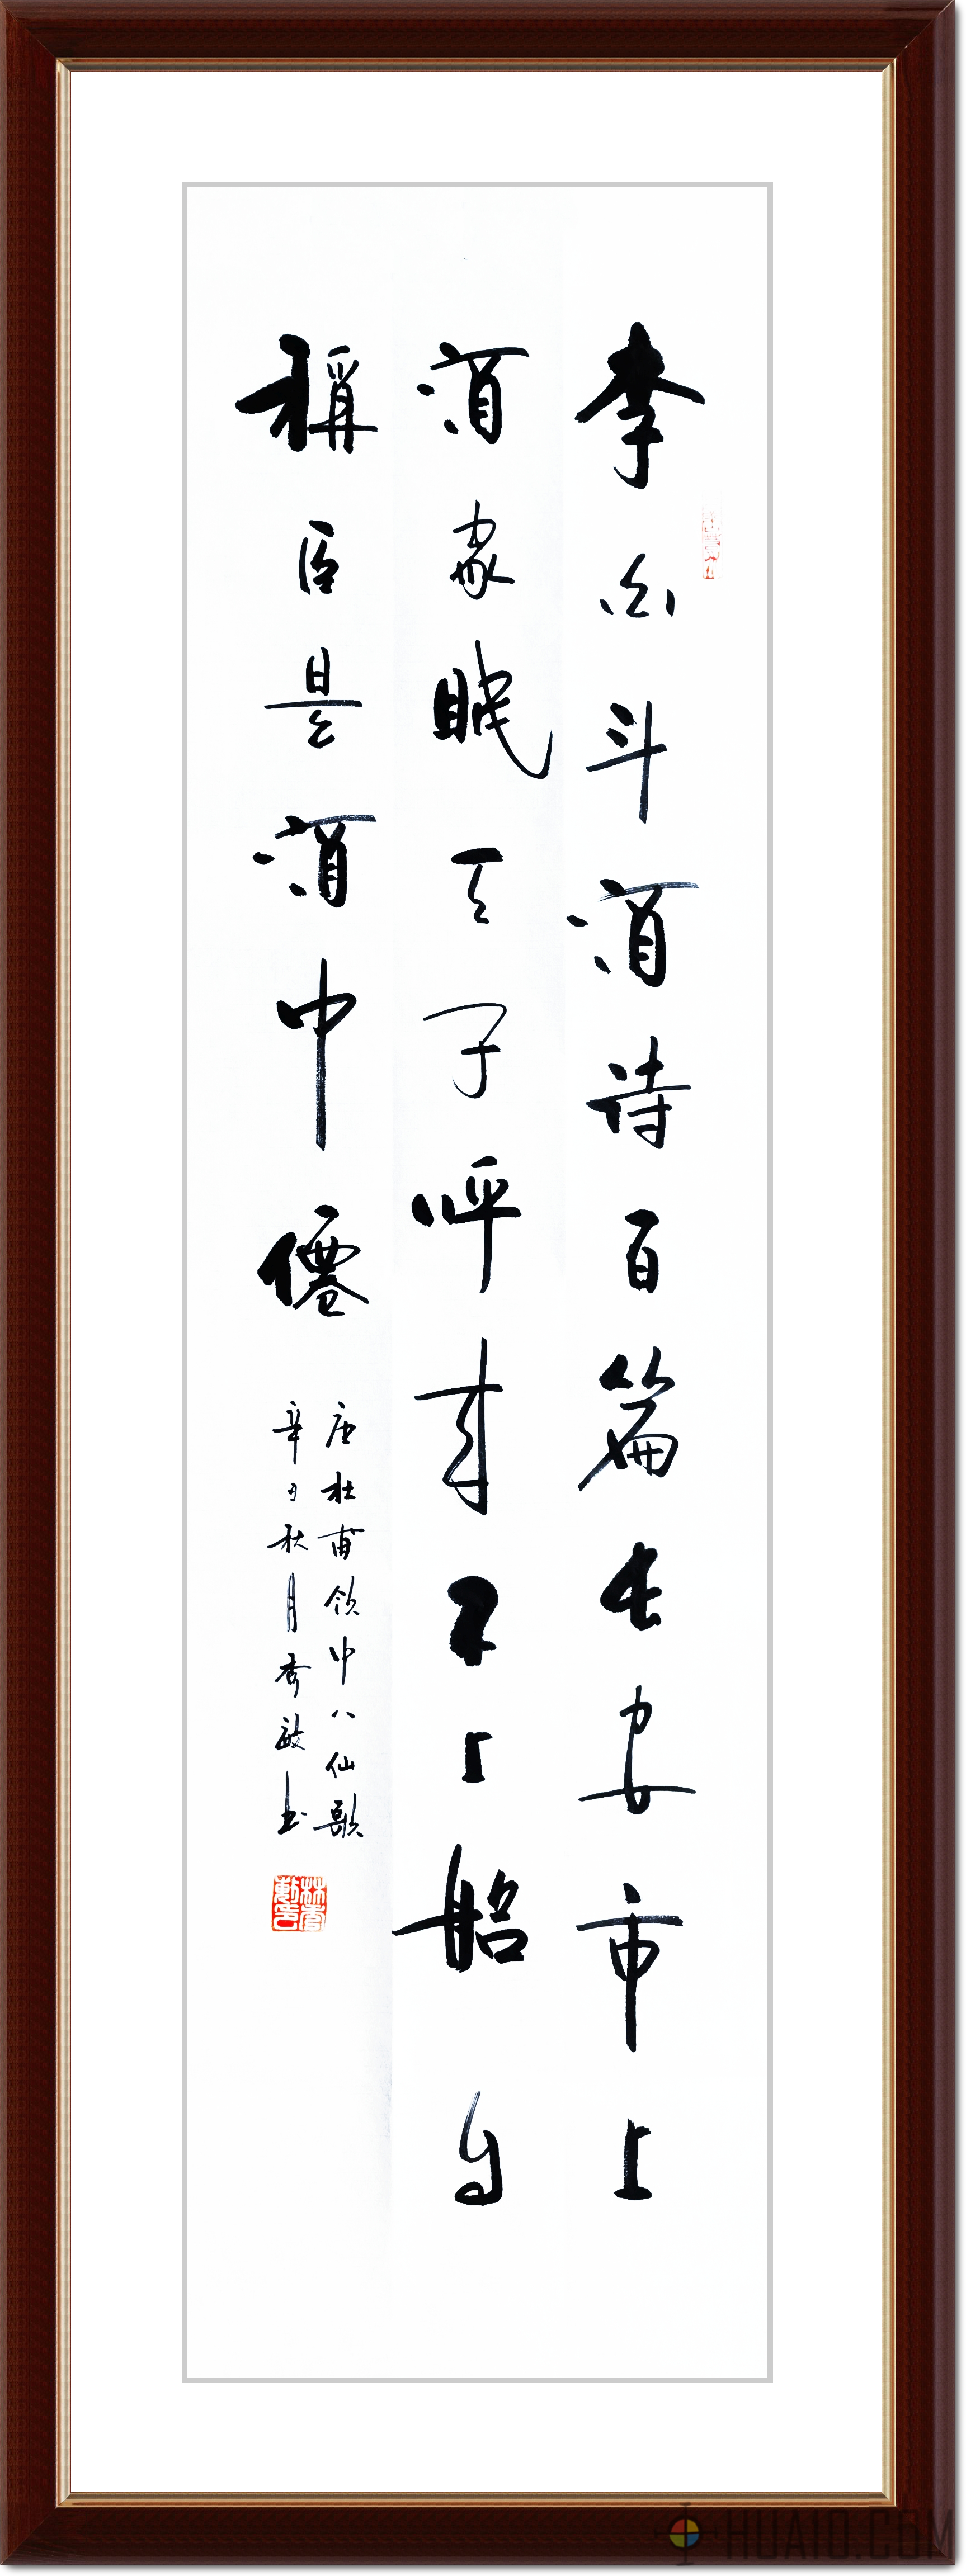 李白斗酒诗百篇长安市上
酒家眠天子呼来不上船自
稱臣是酒中僊
唐杜甫饮中八仙歌
辛丑秋月秀敏书
HUAIO.COM